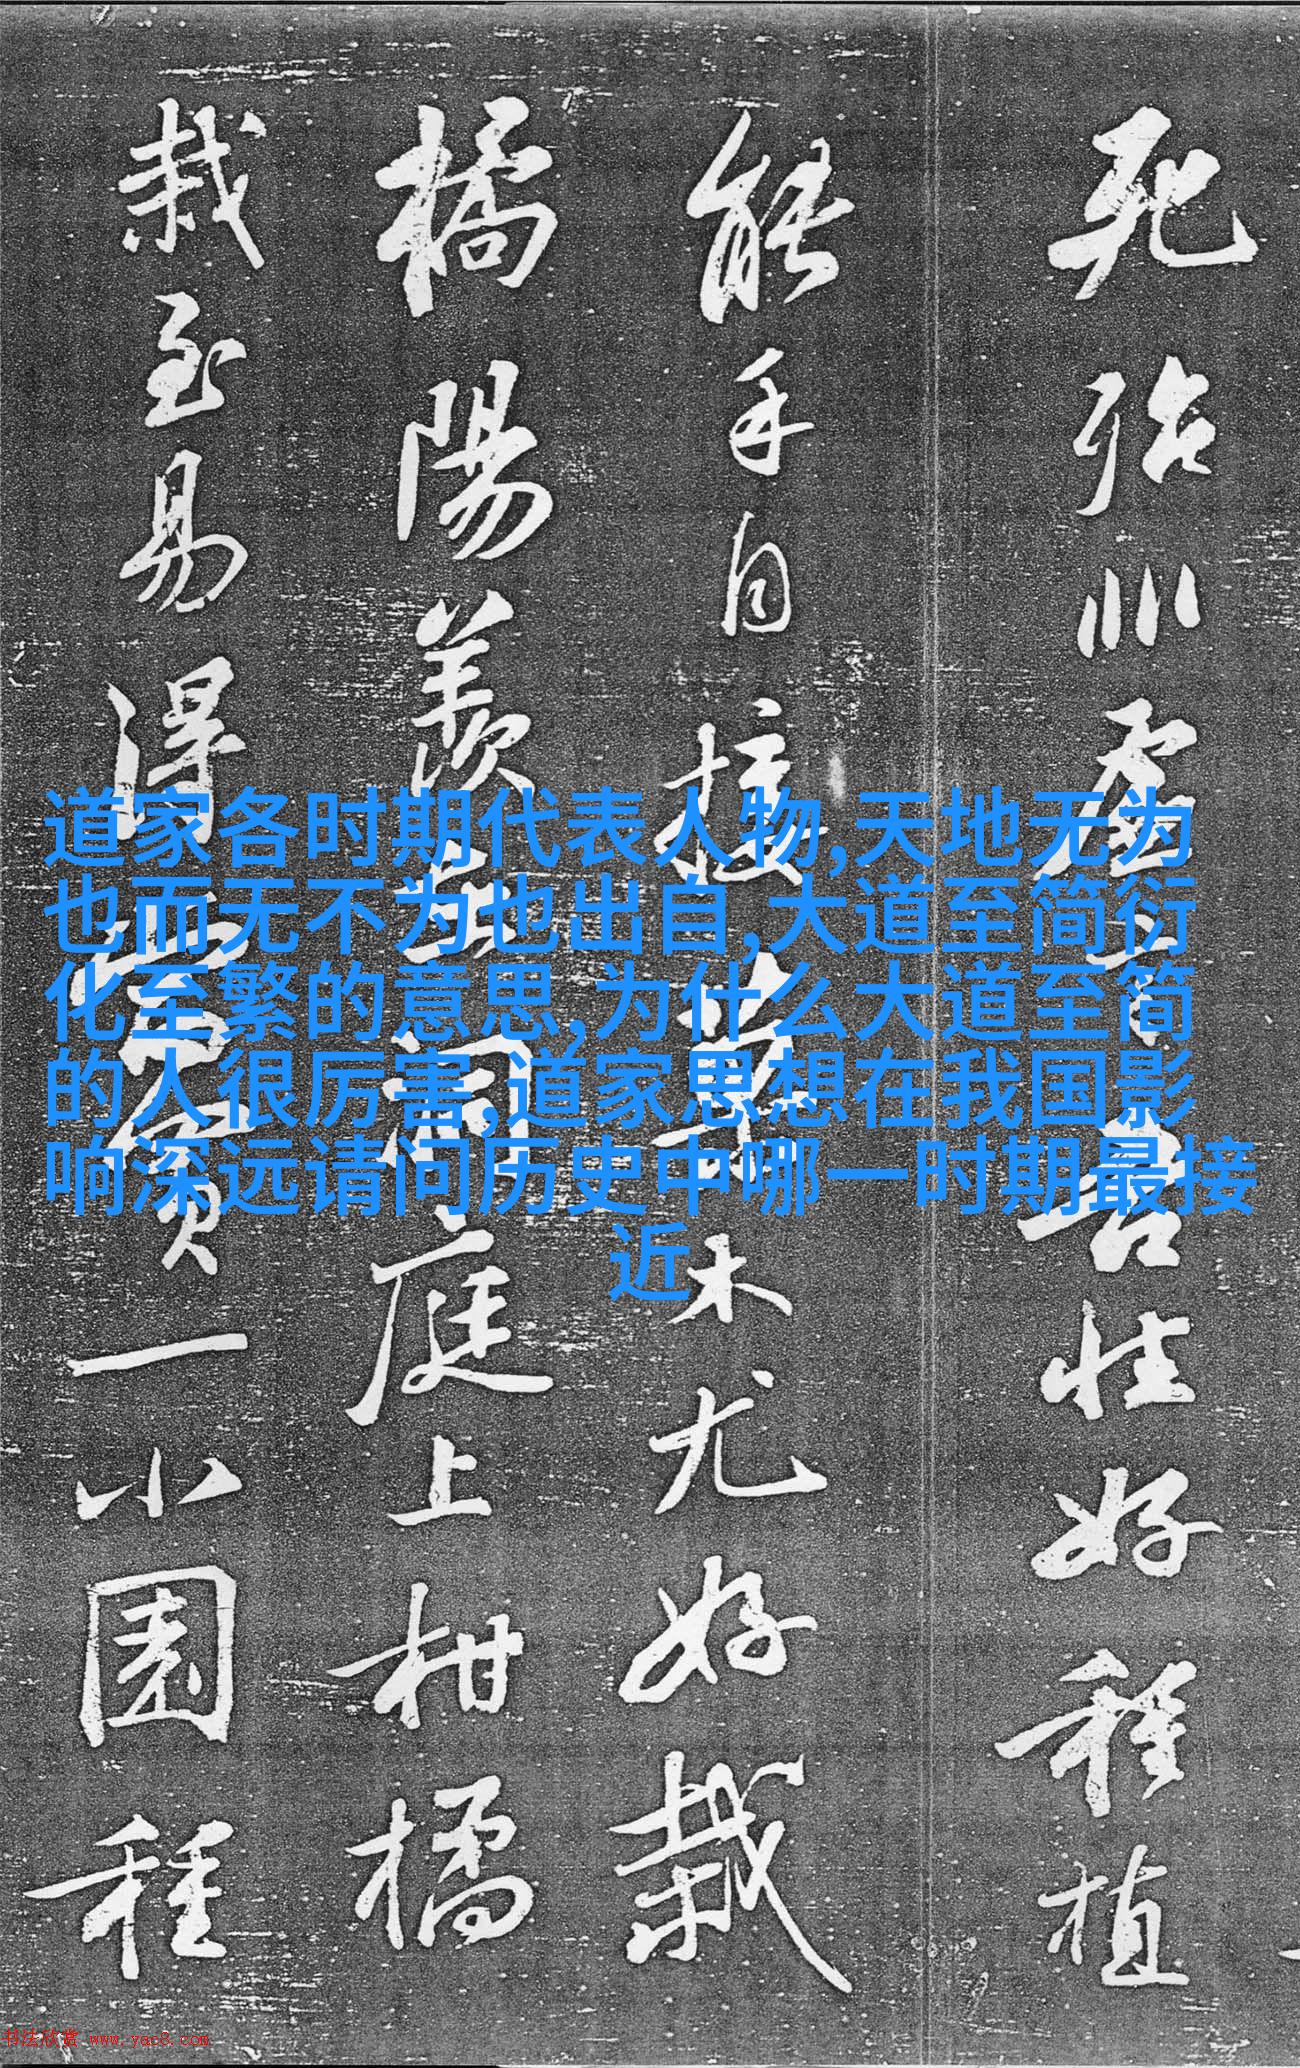 死殆非虚言吾性好種植
能手自接菓木尤好栽
橘陽羨在洞庭上柑橘
栽至易得當買一小園種
道家各时期代表人物,天地无为
也而无不为也出自,大道至简衍
化至繁的意思,为什么大道至简
的人很厉害,道家思想在我国影
响深远请问历史中哪一时期最接
近
书法欣赏 www.yac8.com